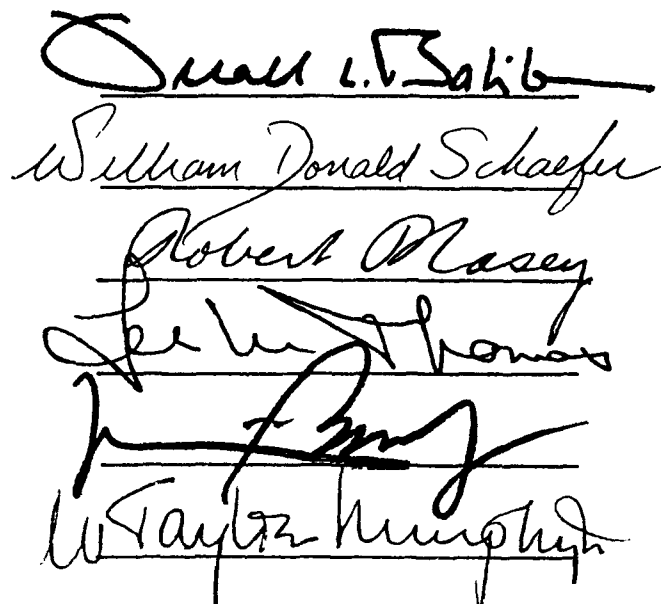 L. Balil
William Donald Schaefer
Robert P Casey
Lee M Thomas
W Tayloe Murphy Jr